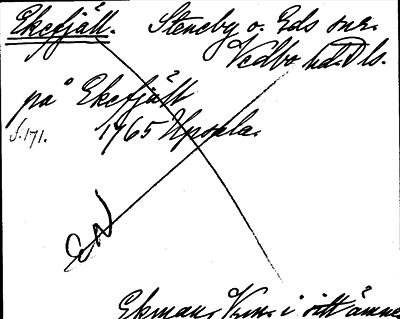 Ekefjäll. Steneby o. Eds snr.
Vedbo hd. Dls.
på Ekefjäll
S. 171. 1765 Uppsla.
EN
Ekman, i sitt ämne